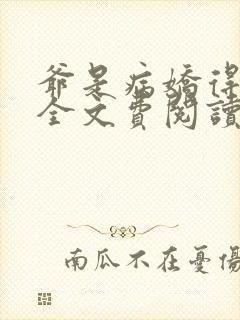 爺是病嬌得
全文費閱讀
南瓜不在憂傷